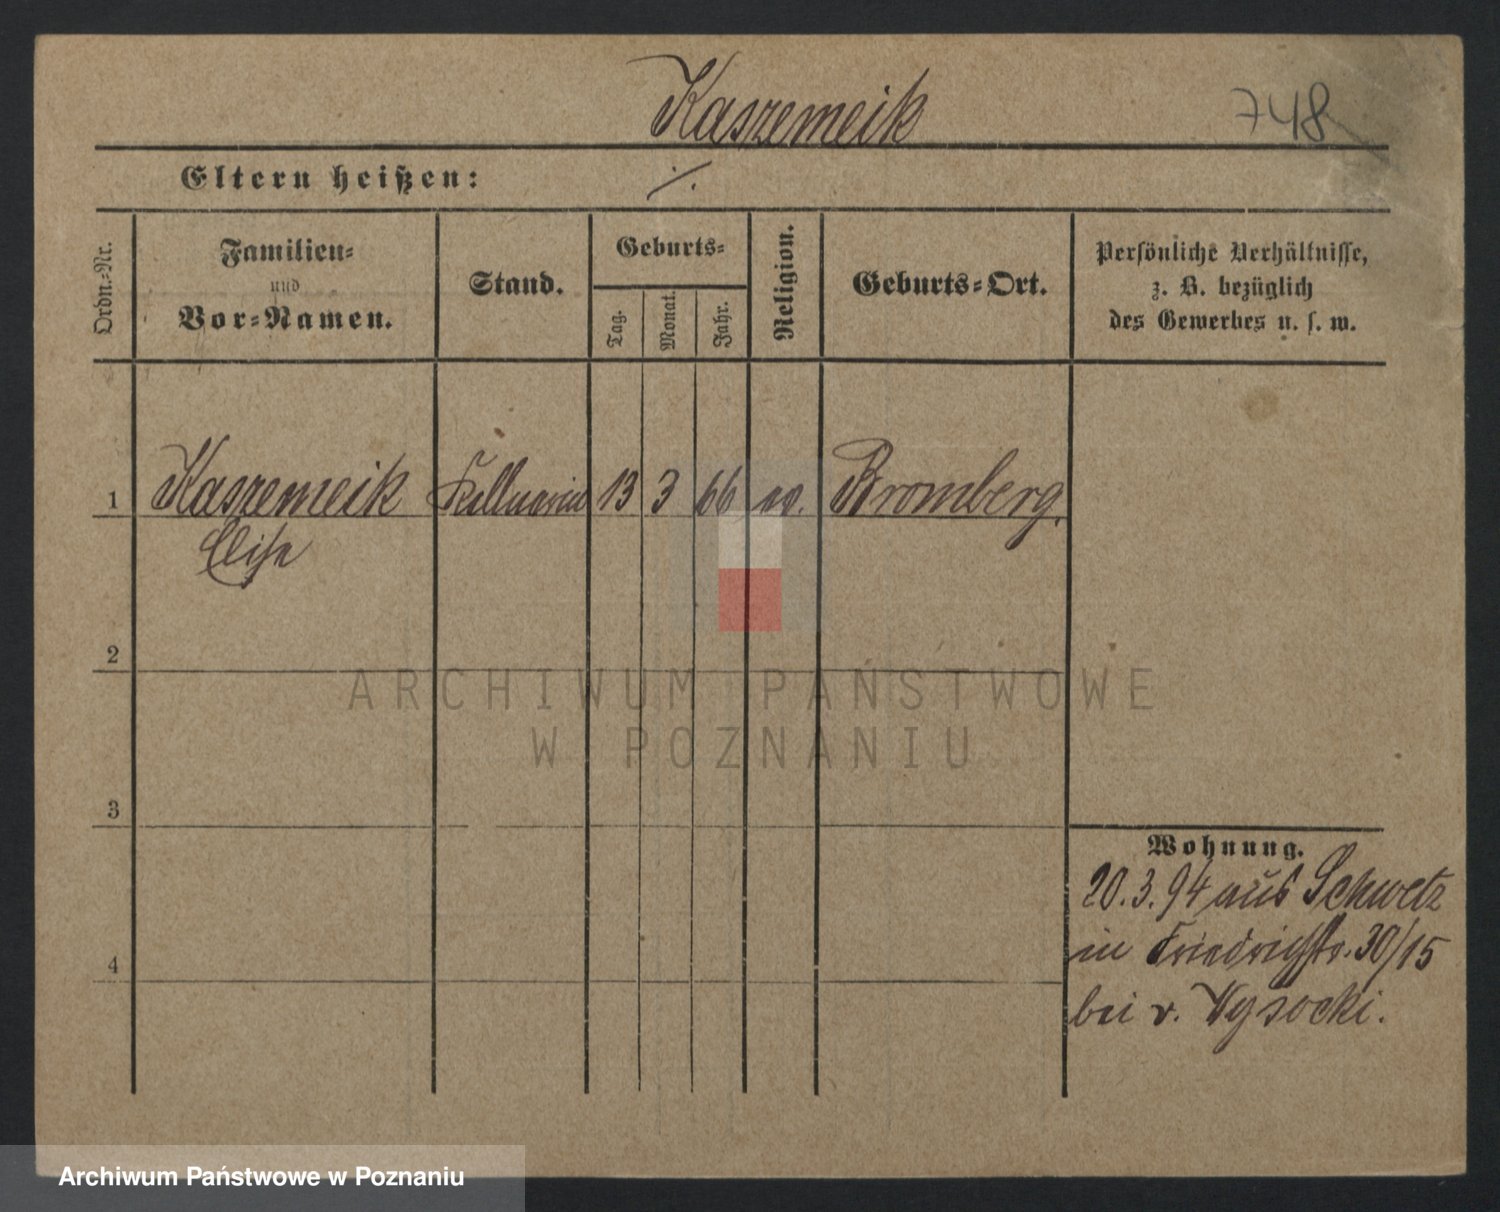 Kaszemeik
748
Eltern heißen: ·/.
Ordn.-Nr.
Familien-
und
Vor-Namen.
Stand.
Geburts-
Tag.
Monat.
Jahr.
Religion.
Geburts-Ort.
Persönliche Verhältnisse,
z. B. bezüglich
des Gewerbes u. s. w.
1 Kaszemeik Kellnerin 13 3 66 ev. Bromberg.
Elise
2
3
4
Wohnung.
20.3.94 aus Schwetz
in Friedrichstr. 30/15
bei v. Wysocki.
ARCHIWUM PAŃSTWOWE
W POZNANIU
Archiwum Państwowe w Poznaniu